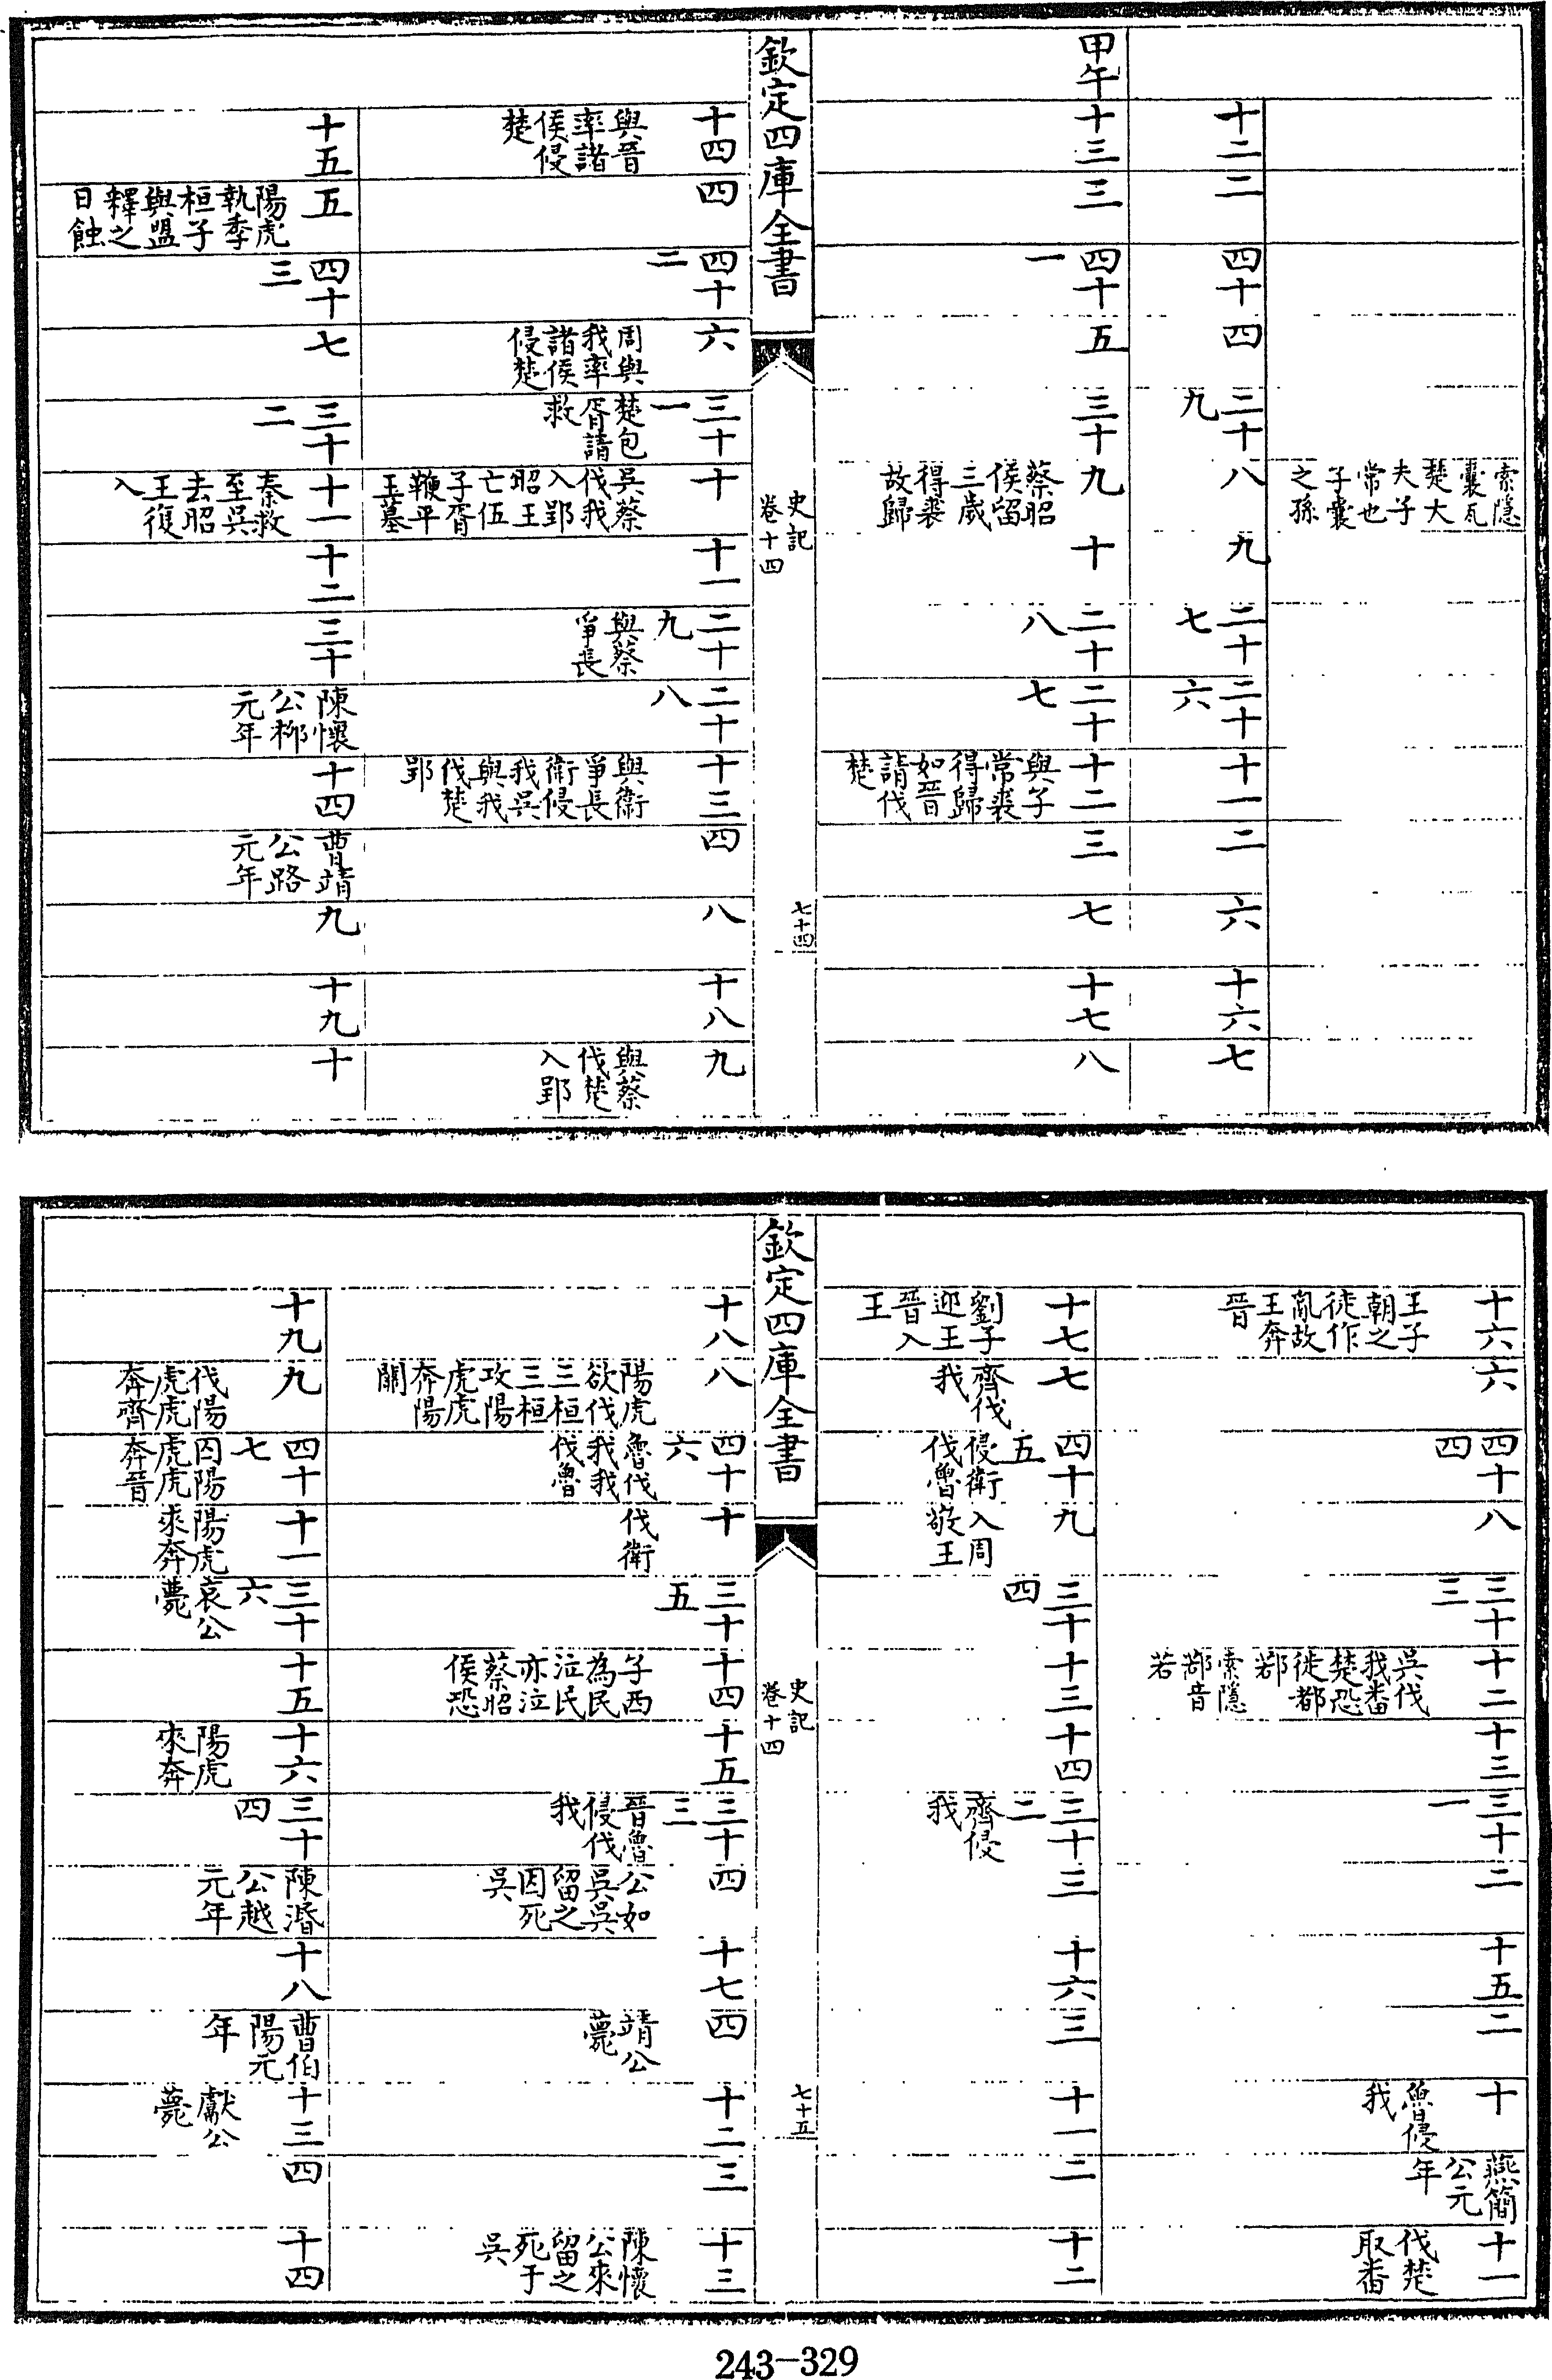 索隱囊瓦楚大夫子常也子囊之孫
十二
二
四十
四
三十九
八
九
二十七
二十六
十一
二
六
十六
七
甲午
十三
三
四十一
五
三十
九 蔡昭侯留三歲得裘故歸
十
二十八
二十七
十二 與子常裘得歸如晉請伐楚
三
七
十七
八
欽定四庫全書
史記
卷十四
七十四
十四 與晉率諸侯侵楚
四
四十二
六 周與我率諸侯侵楚
三十一 楚包胥請救
十 吳蔡伐我入郢昭王亡伍子胥鞭平王墓
十一
二十九 與蔡爭長
二十八
十三 與衛爭長衛侵我吳與我伐楚郢
四
八
十八
九 與蔡伐楚入郢
十五
五 陽虎執季桓子與盟釋之日蝕
四十三
七
三十二
十一 秦救至吳去昭王復入
十二
三十
陳懷公柳元年
十四
曹靖公路元年
九
十九
十
十六 王子朝之徒作亂故王奔晉
六
四十四
八
三十三
十二 吳伐我番楚恐徙都鄀索隱鄀音若
十三
三十一
二
十五
二
十 魯侵我
燕簡公元年
十一 伐楚取番
十七 劉子迎王晉入王
七 齊伐我
四十五 侵衛伐魯
九 入周敬王
三十四
十三
十四
三十二 齊侵我
三
十六
三
十一
二
十二
欽定四庫全書
史記
卷十四
七十五
十八
八 陽虎欲伐三桓三桓攻陽虎虎奔陽關
四十六 魯伐我我伐魯
十 伐衛
三十五
十四 子西為民泣民亦泣蔡昭侯恐
十五
三十三 晉魯侵伐我
四 公如吳吳留之因死吳
十七
四 靖公薨
十二
三
十三 陳懷公來留之死于吳
十九
九 伐陽虎虎奔齊
四十七 囚陽虎虎奔晉
十一 陽虎來奔
三十六 哀公薨
十五
十六 陽虎來奔
三十四
陳湣公越元年
十八
曹伯陽元年
十三 獻公薨
四
十四
243-329